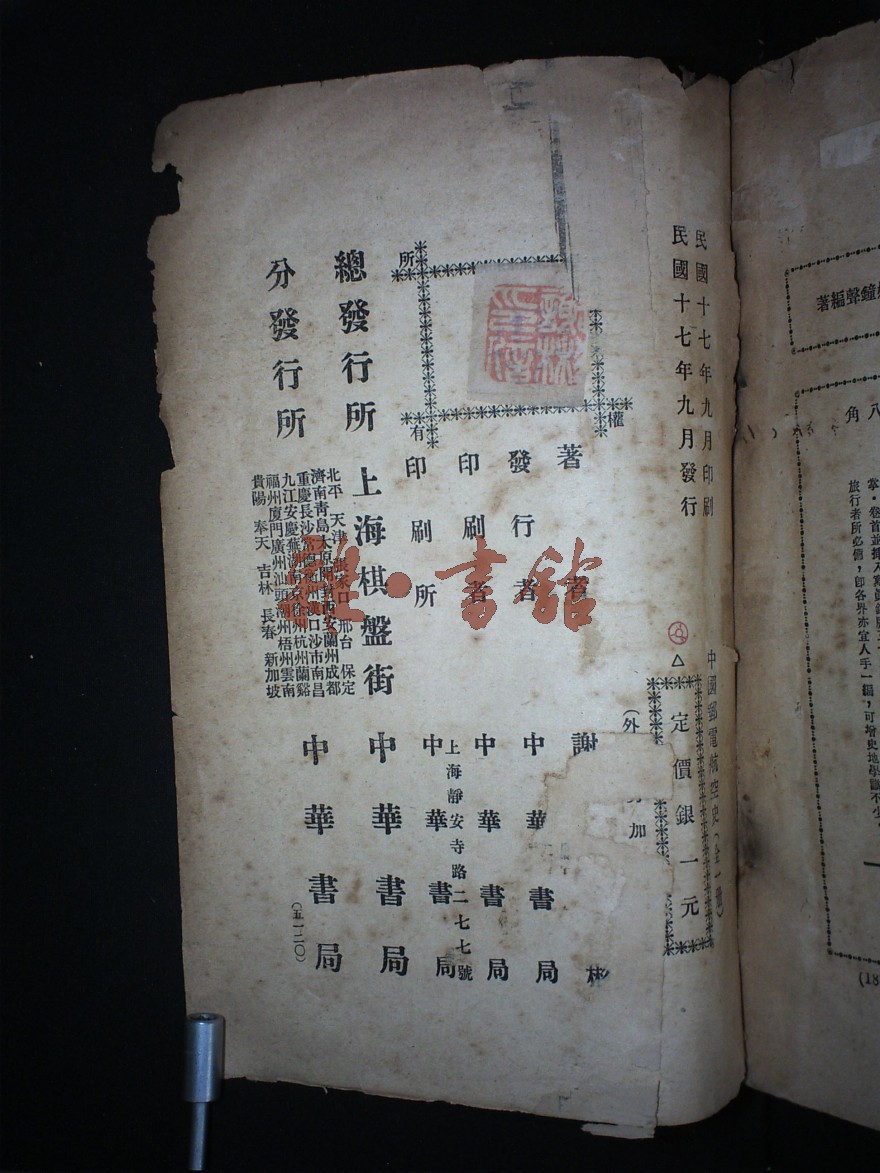 民國十七年九月印刷
民國十七年九月發行
中國郵電航空史(全一冊)
定價銀一元
(外
加
著者
謝彬
發行者
中華書局
印刷者
中華書局
印刷所
上海靜安寺路二七七號
中華書局
總發行所
上海棋盤街
中華書局
分發行所
北平 天津 張家口 邢台 保定
濟南青島太原開封西安蘭州成都
重慶長沙常 漢口沙市南昌
九江安慶蕪湖南京徐州杭州蘭谿
福州廈門廣州汕頭潮州梧州雲南
貴陽 奉天 吉林 長春 新加坡
中華書局
(五一二〇)
權
有
所
書館
鐘聲編著
八角
旅行者所必備,即各界亦宜人手一編,可增史地學識不少
(18